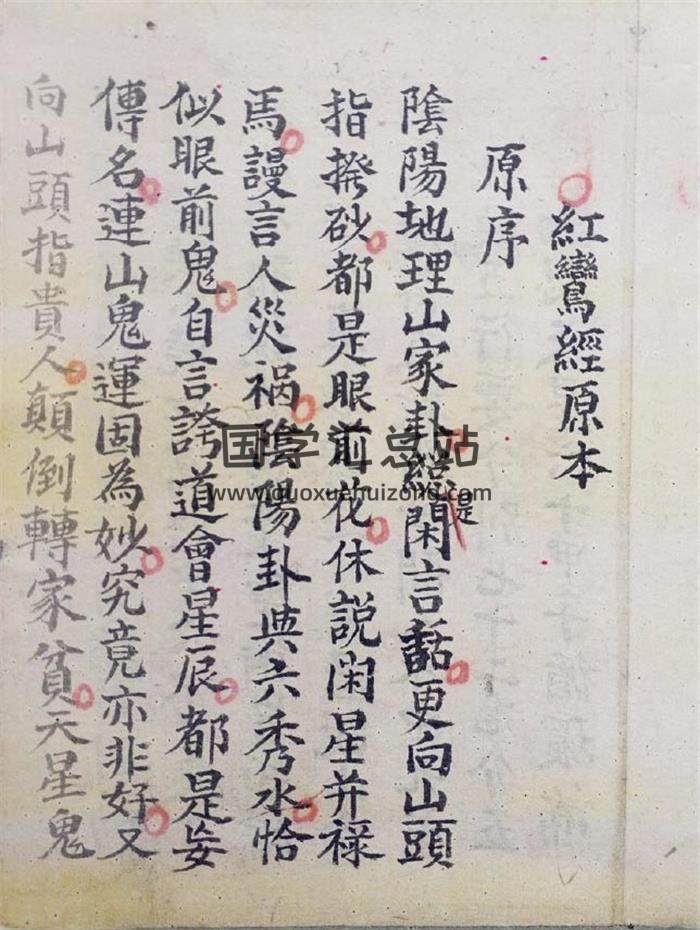 紅鸞經原本
原序
陰陽地理山家卦總是閑言話更向山頭
指撥砂都是眼前花休說閑星并祿
馬謾言人災禍陰陽卦與六秀水恰
似眼前鬼自言誇道會星辰都是妄
傳名連山鬼運固為妙究竟亦非好又
向山頭指貴人顛倒轉家貧天星鬼
国学汇总站
www.guoxuehuizong.com